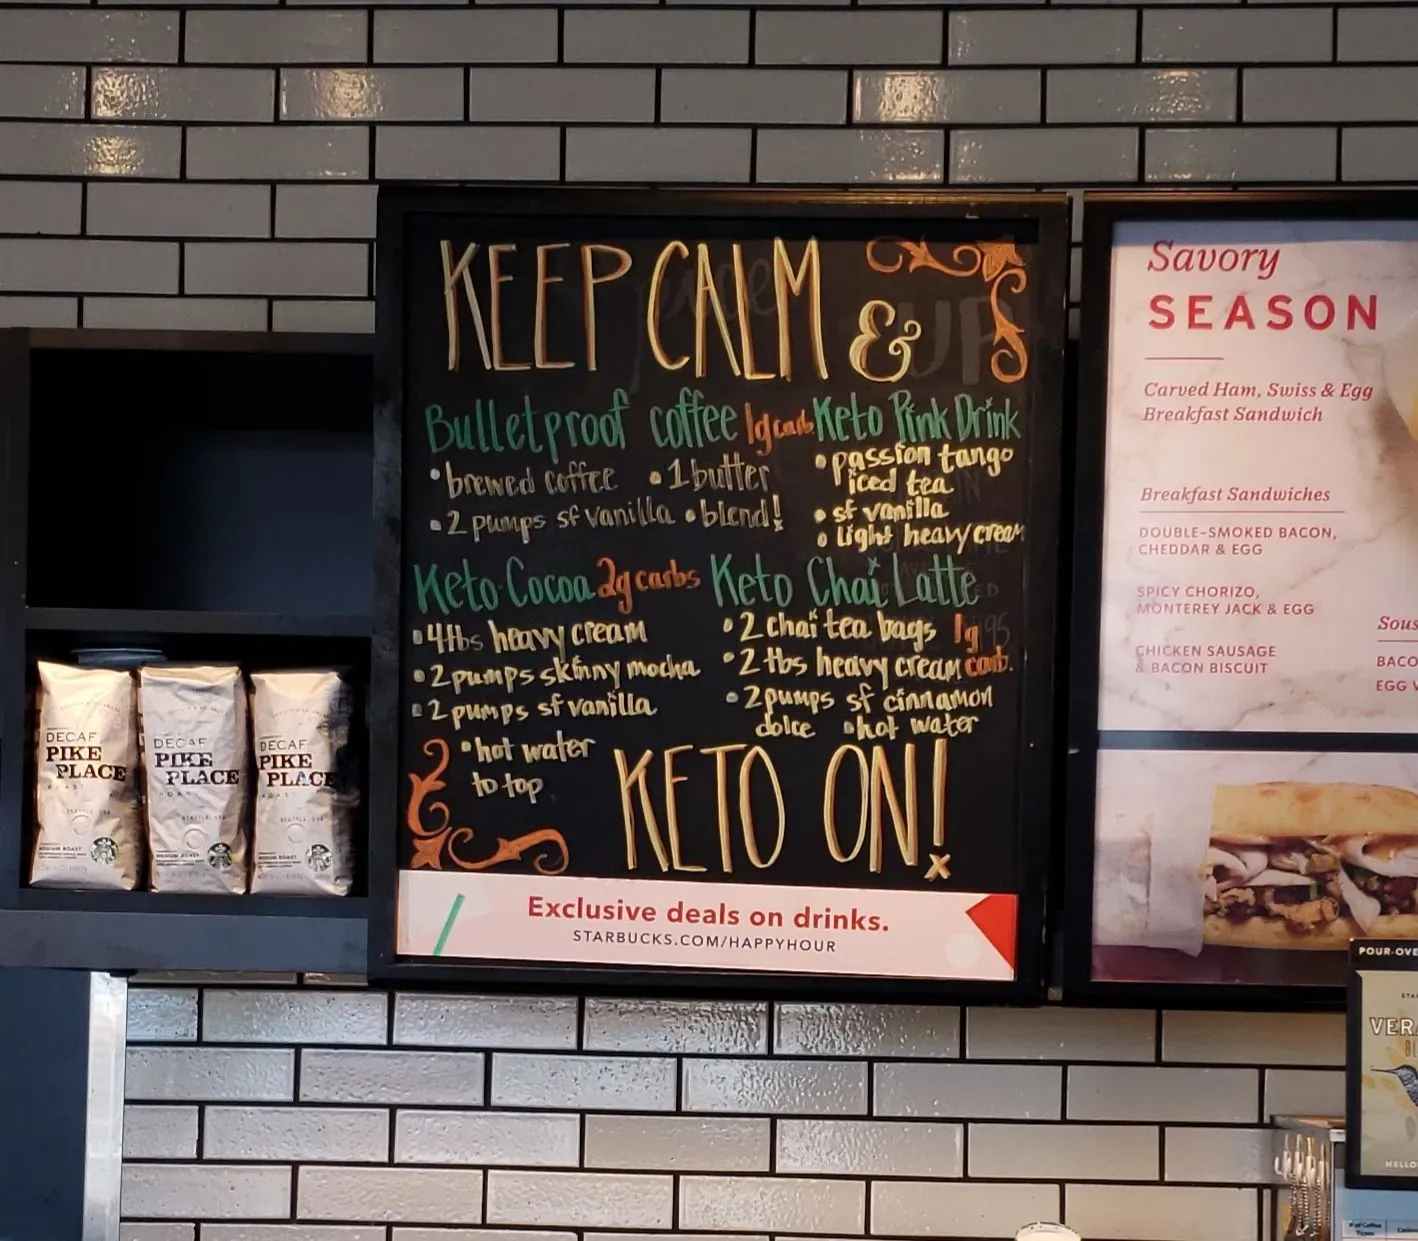 KEEP CALM
&
Bulletproof coffee 1g carb
• brewed coffee • 1 butter
• 2 pumps sf vanilla • blend!
Keto Pink Drink
• passion tango
iced tea
• sf vanilla
• light heavy cream
Keto Cocoa 2g carbs
• 4 tbs heavy cream
• 2 pumps skinny mocha
• 2 pumps sf vanilla
• hot water
to top
Keto Chai Latte
• 2 chai tea bags 1g
• 2 tbs heavy cream carb.
• 2 pumps sf cinnamon
dolce • hot water
KETO ON!
Exclusive deals on drinks.
STARBUCKS.COM/HAPPYHOUR
DECAF
PIKE
PLACE
ROAST
MEDIUM ROAST
DECAF
PIKE
PLACE
SEATTLE, USA
MEDIUM ROAST
DECAF
PIKE
PLACE
MEDIUM ROAST
Savory
SEASON
Carved Ham, Swiss & Egg
Breakfast Sandwich
Breakfast Sandwiches
DOUBLE-SMOKED BACON,
CHEDDAR & EGG
SPICY CHORIZO,
MONTEREY JACK & EGG
CHICKEN SAUSAGE
& BACON BISCUIT
Sous
BACO
EGG W
POUR-OVE
STA
VERA
BL
MELLO
# of Coffee
Types